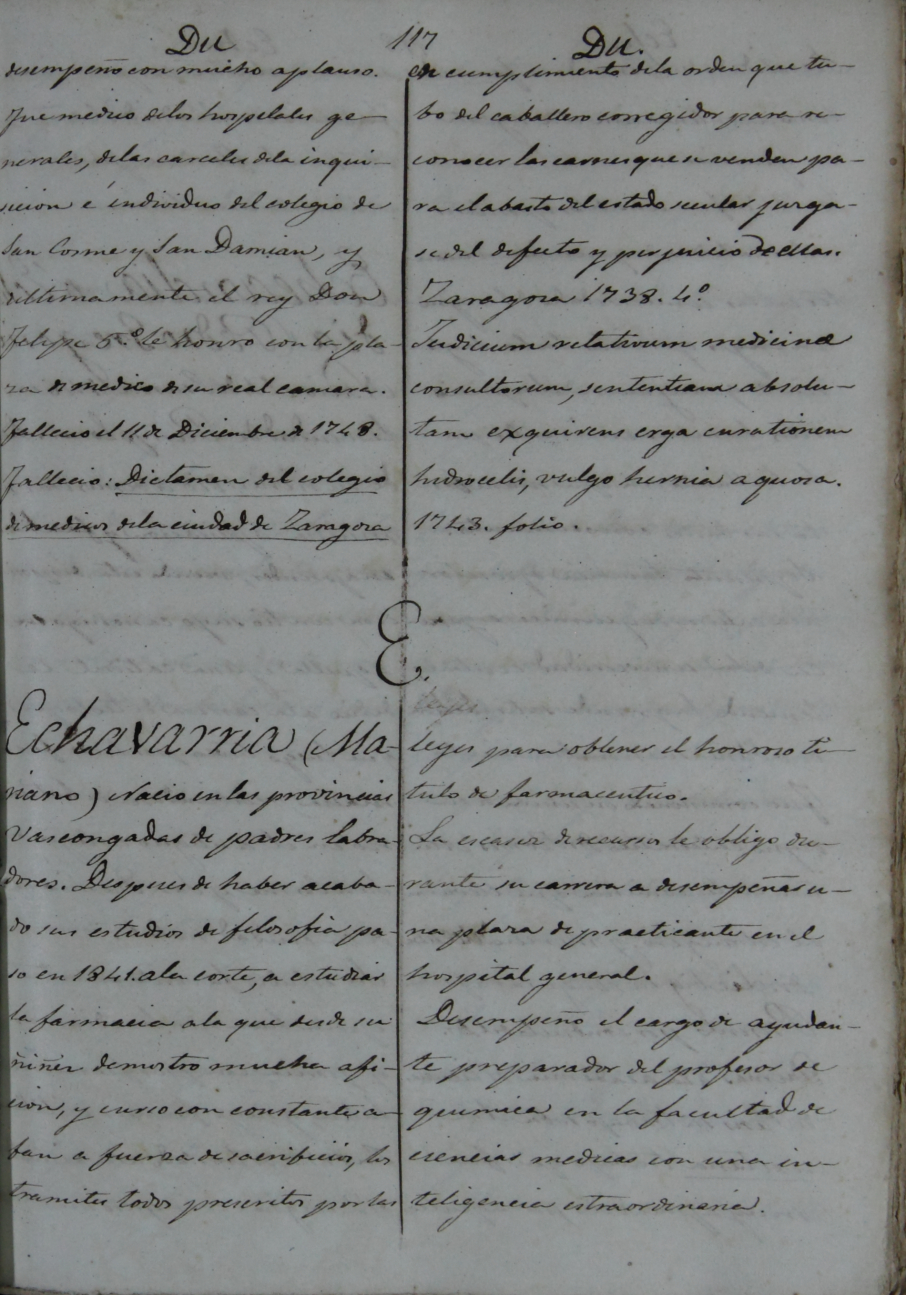 Du
117
Du.
desempeño con mucho aplauso.
Fue medico delos hospitales ge-
nerales, delas carceles dela inqui-
sicion é individuo del colegio de
San Cosme y San Damian, y
ultimamente el rey Don
Felipe 5.º le honro con la pla-
za de medico de su real camara.
Fallecio el 11 de Diciembre de 1748.
Fallecio: Dictamen del colegio
de medicos dela ciudad de Zaragoza
en cumplimiento dela orden que tu-
bo del caballero corregidor para re-
conocer las carnes que se venden pa-
ra el abasto del estado secular jurga-
se del defecto y perjuicio de ellas.
Zaragoza 1738. 4.º
Judicium relativum medicinæ
consultorum, sententiam absolu-
tam exquirens erga curationem
hidrocelis, vulgo hernia aquosa.
1743. folio.
E.
Echavarria (Ma-
riano) Nacio en las provincias
Vascongadas de padres labra-
dores. Despues de haber acaba-
do sus estudios de filosofia pa-
so en 1841. ala corte, a estudiar
la farmacia ala que desde su
niñez demostro mucha afi-
cion, y curso con constante a-
fan a fuerza de sacrificios, los
tramites todos prescritos por las
leyes para obtener el honroso ti-
tulo de farmaceutico.
La escasez de recursos le obligo du-
rante su carrera a desempeñar u-
na plaza de practicante en el
hospital general.
Desempeño el cargo de ayudan-
te preparador del profesor de
quimica en la facultad de
ciencias medicas con una in-
teligencia estraordinaria.